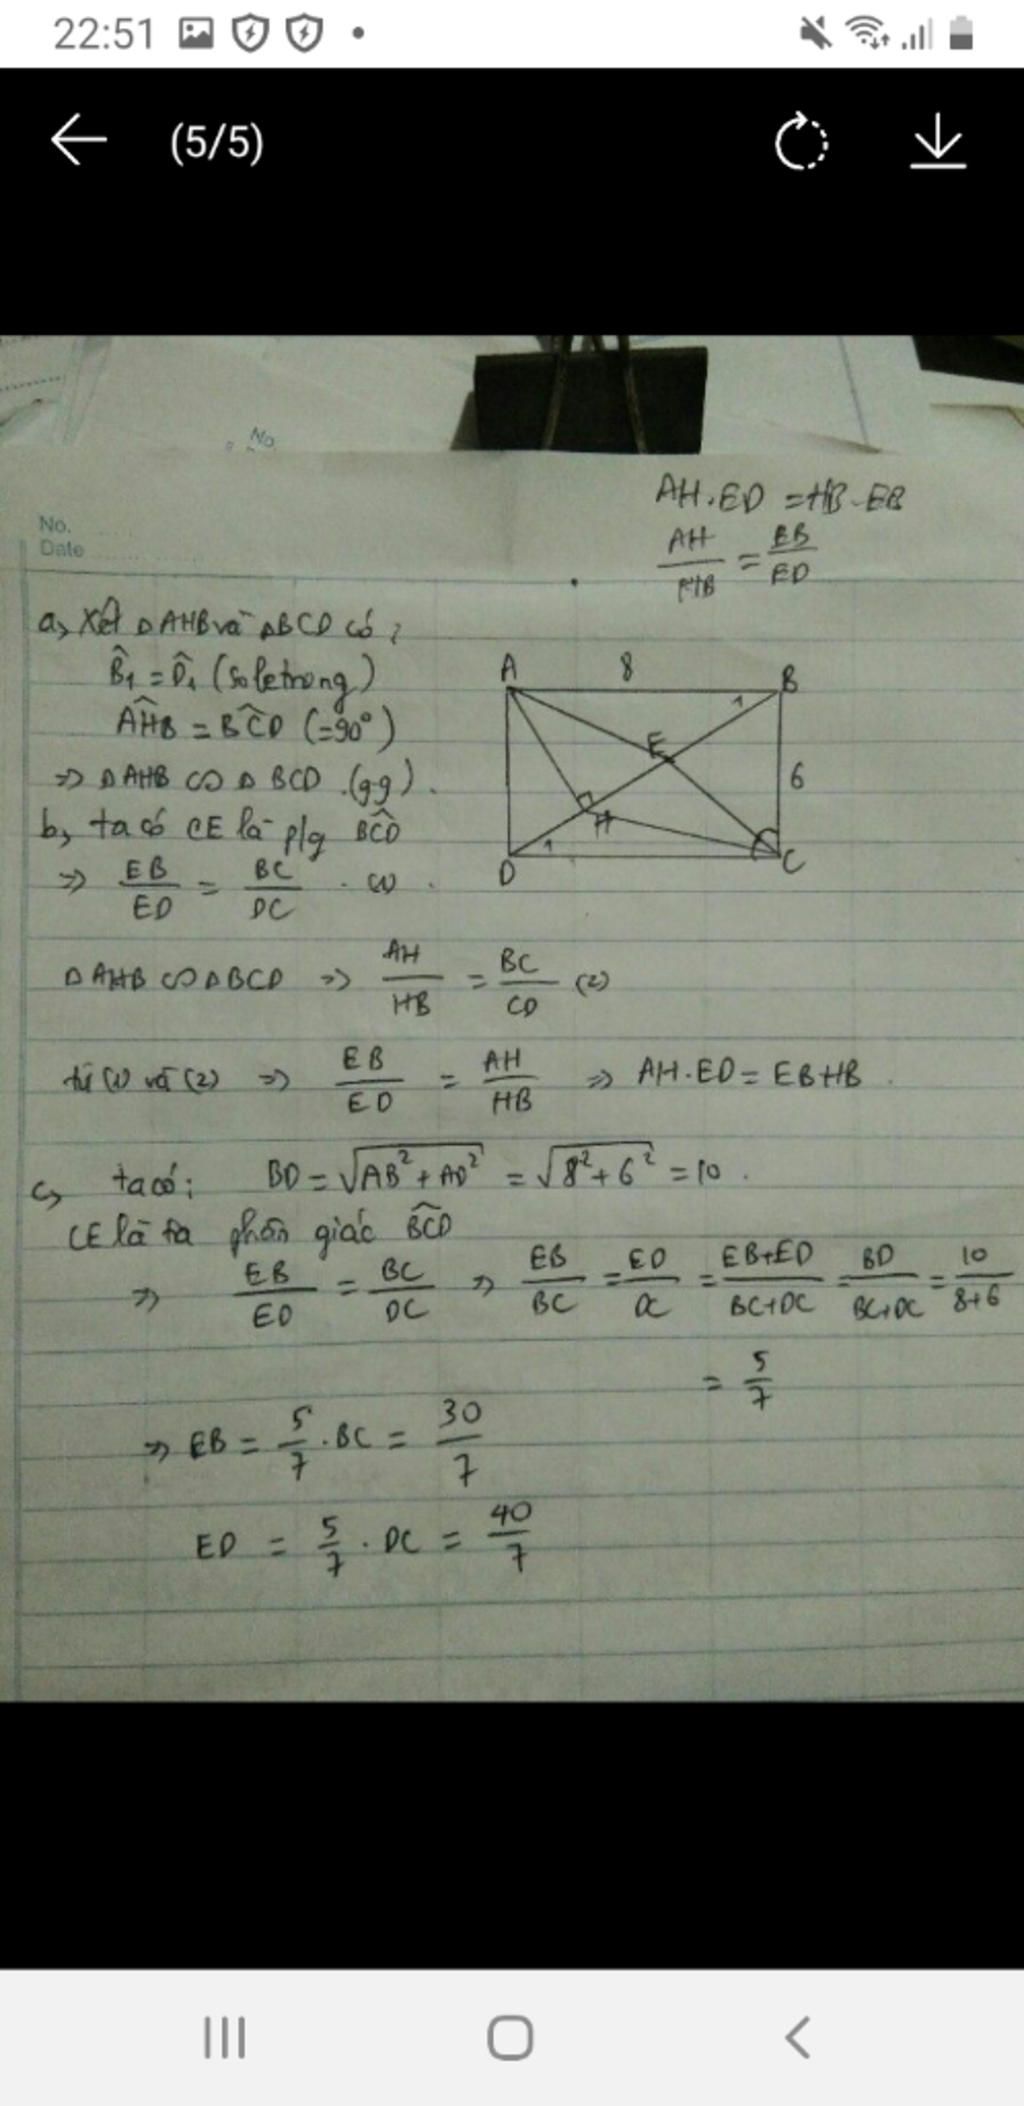 22:51
(5/5)
No.
No.
Date
AH.ED = HB.EB
AH/HB = EB/ED
a, Xét ΔAHB và ΔBCD có:
B̂₁ = D̂₁ (so le trong)
AĤB = BĈD (=90°)
=> ΔAHB ∽ ΔBCD (gg).
b, ta có CE là p/g BĈD
=> EB/ED = BC/DC . (1)
ΔAHB ∽ ΔBCD => AH/HB = BC/CD (2)
từ (1) và (2) => EB/ED = AH/HB => AH.ED = EB+HB
c, ta có: BD = √(AB² + AD²) = √(8² + 6²) = 10.
CE là tia phân giác BĈD
=> EB/ED = BC/DC => EB/BC = ED/DC = EB+ED/BC+DC = BD/BC+DC = 10/8+6
= 5/7
=> EB = 5/7 . BC = 30/7
ED = 5/7 . DC = 40/7
A 8 B
1
E
6
H
1
D C